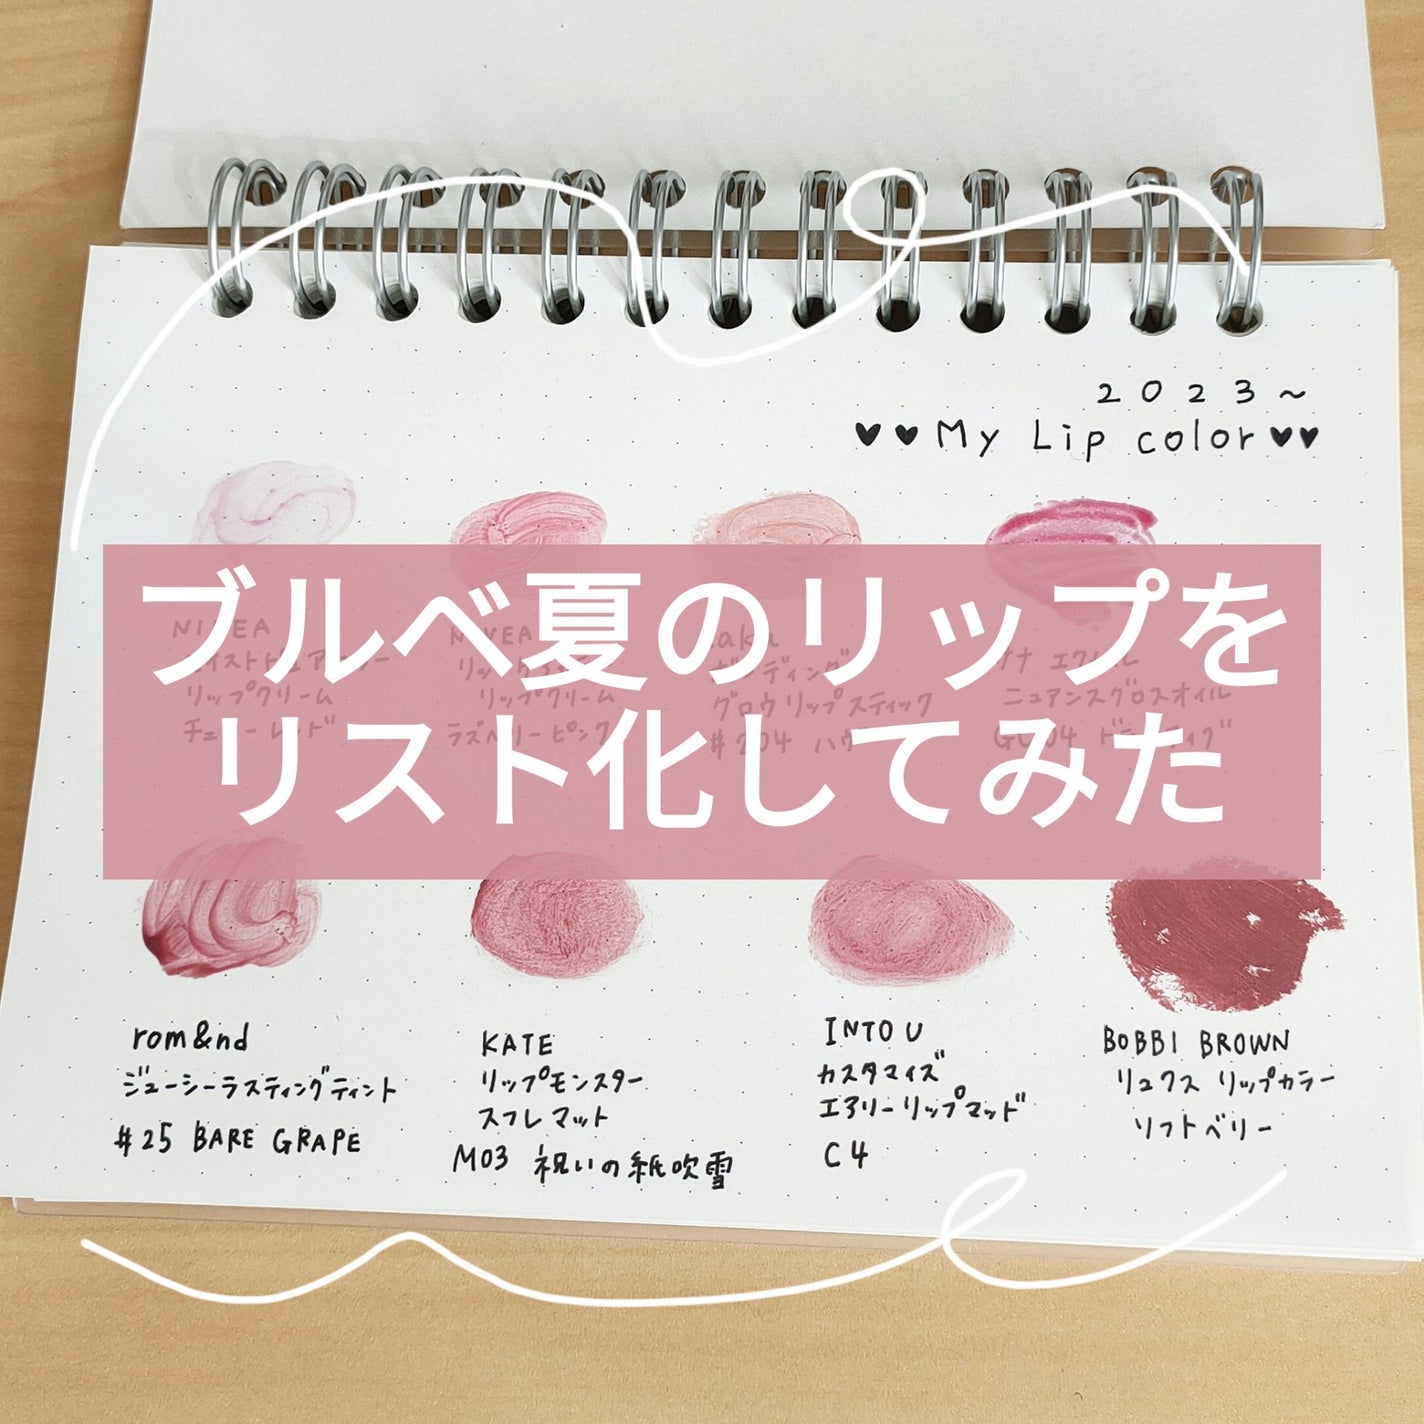 2023~
♥♥My Lip color♥♥
ブルベ夏のリップを
リスト化してみた
NIVEA
リップクリーム
NIVEA
リップクリーム
ラズベリーピンク
グロウリップスティック
#204
ニュアンスグロスオイル
rom&nd
ジューシーラスティングティント
#25 BARE GRAPE
KATE
リップモンスター
スフレマット
M03 祝いの紙吹雪
INTO U
カスタマイズ
エアリーリップマッド
C4
BOBBI BROWN
リュクス リップカラー
ソフトベリー